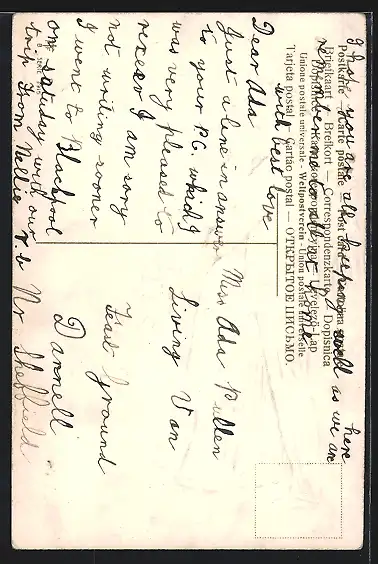 I hope you are all keeping well as we are here
remember me to all at home
with best love
Postkarte — Carte postale
Briefkaart — Brefkort — Correspondenzkarte
Dopisnica
Lap
Unione postale universale - Weltpostverein - Union postale universelle
Tarjeta postal — Cartão postal — ОТКРЫТОЕ ПИСЬМО.
Dear Ada
Just a line in answer
to your P.C. which I
was very pleased to
receive I am sory
not writing sooner
I went to Blackpool
on satuday with our
trip from Nellie
Miss Ada Pullen
Living Van
Feast Ground
Darnell
Nr. Sheffield